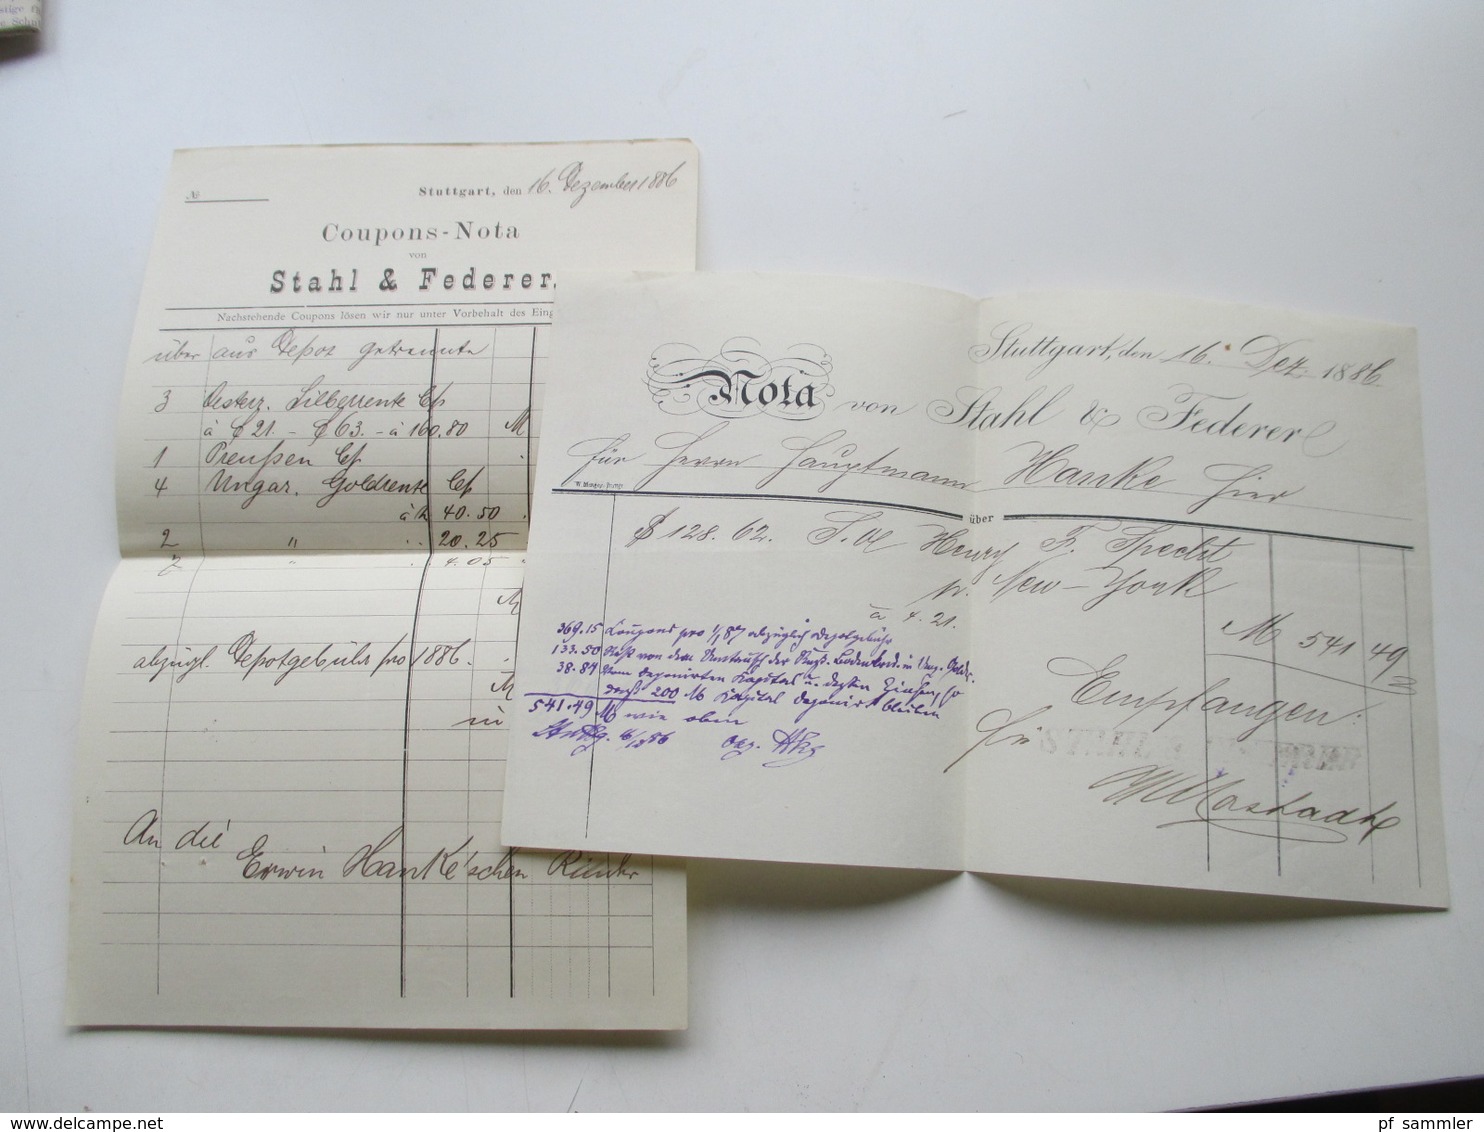 stige
Schu
№
Stuttgart, den 16. Dezember 1886
Coupons-Nota
von
Stahl & Federer.
Nachstehende Coupons lösen wir nur unter Vorbehalt des Eing
über aus Depot getrennte
3 Oesterz. Silberrente Cp
à 21. - 63. - à 160.80 M
1 Preußen Cp
4 Ungar. Goldrente Cp
à 40.50
2 " 20.25
" 4.05
M
abzügl. Depotgebühr pro 1886.
M
An die
Erwin Hanke'schen Kinder
Stuttgart, den 16. Dez. 1886
Nota von Stahl & Federer
für Herrn Hauptmann Hanke hier
über
$ 128.62. S. Henry F. Specht
New-York
à 4.21.
M 541 49
369.15 Coupons pro 1/1 87 abzüglich Depotgebühr
133.50 Rest von dem Umtausch der Ung. Bodenkred. in Ung. Goldr.
38.84 Vom deponirten Kapital u. dessen Zinsen, so
daß 200 M Kapital deponirt bleiben
541.49 M wie oben
Stuttg. 16/12 86
Empfangen:
für STAHL & FEDERER
pf_sammler